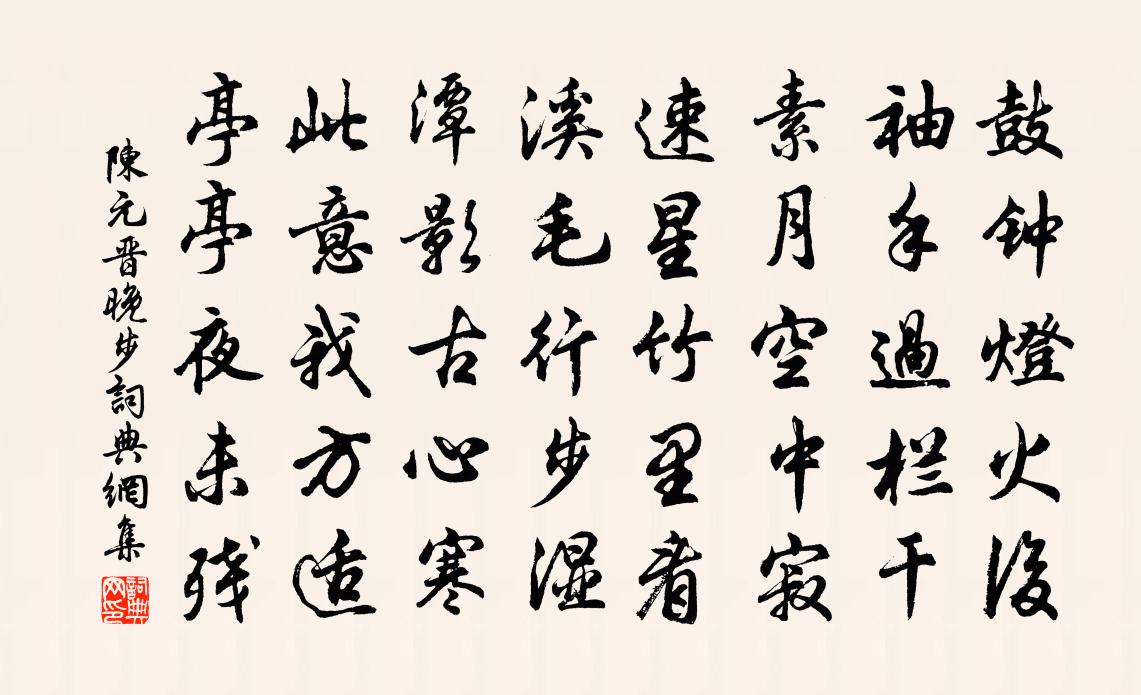 鼓钟燈火後
袖手過栏干
素月空中寂
速星竹里看
溪毛行步濕
潭影古心寒
此意我方适
亭亭夜未残
陳元晋晚步詞典網集
詞典網印